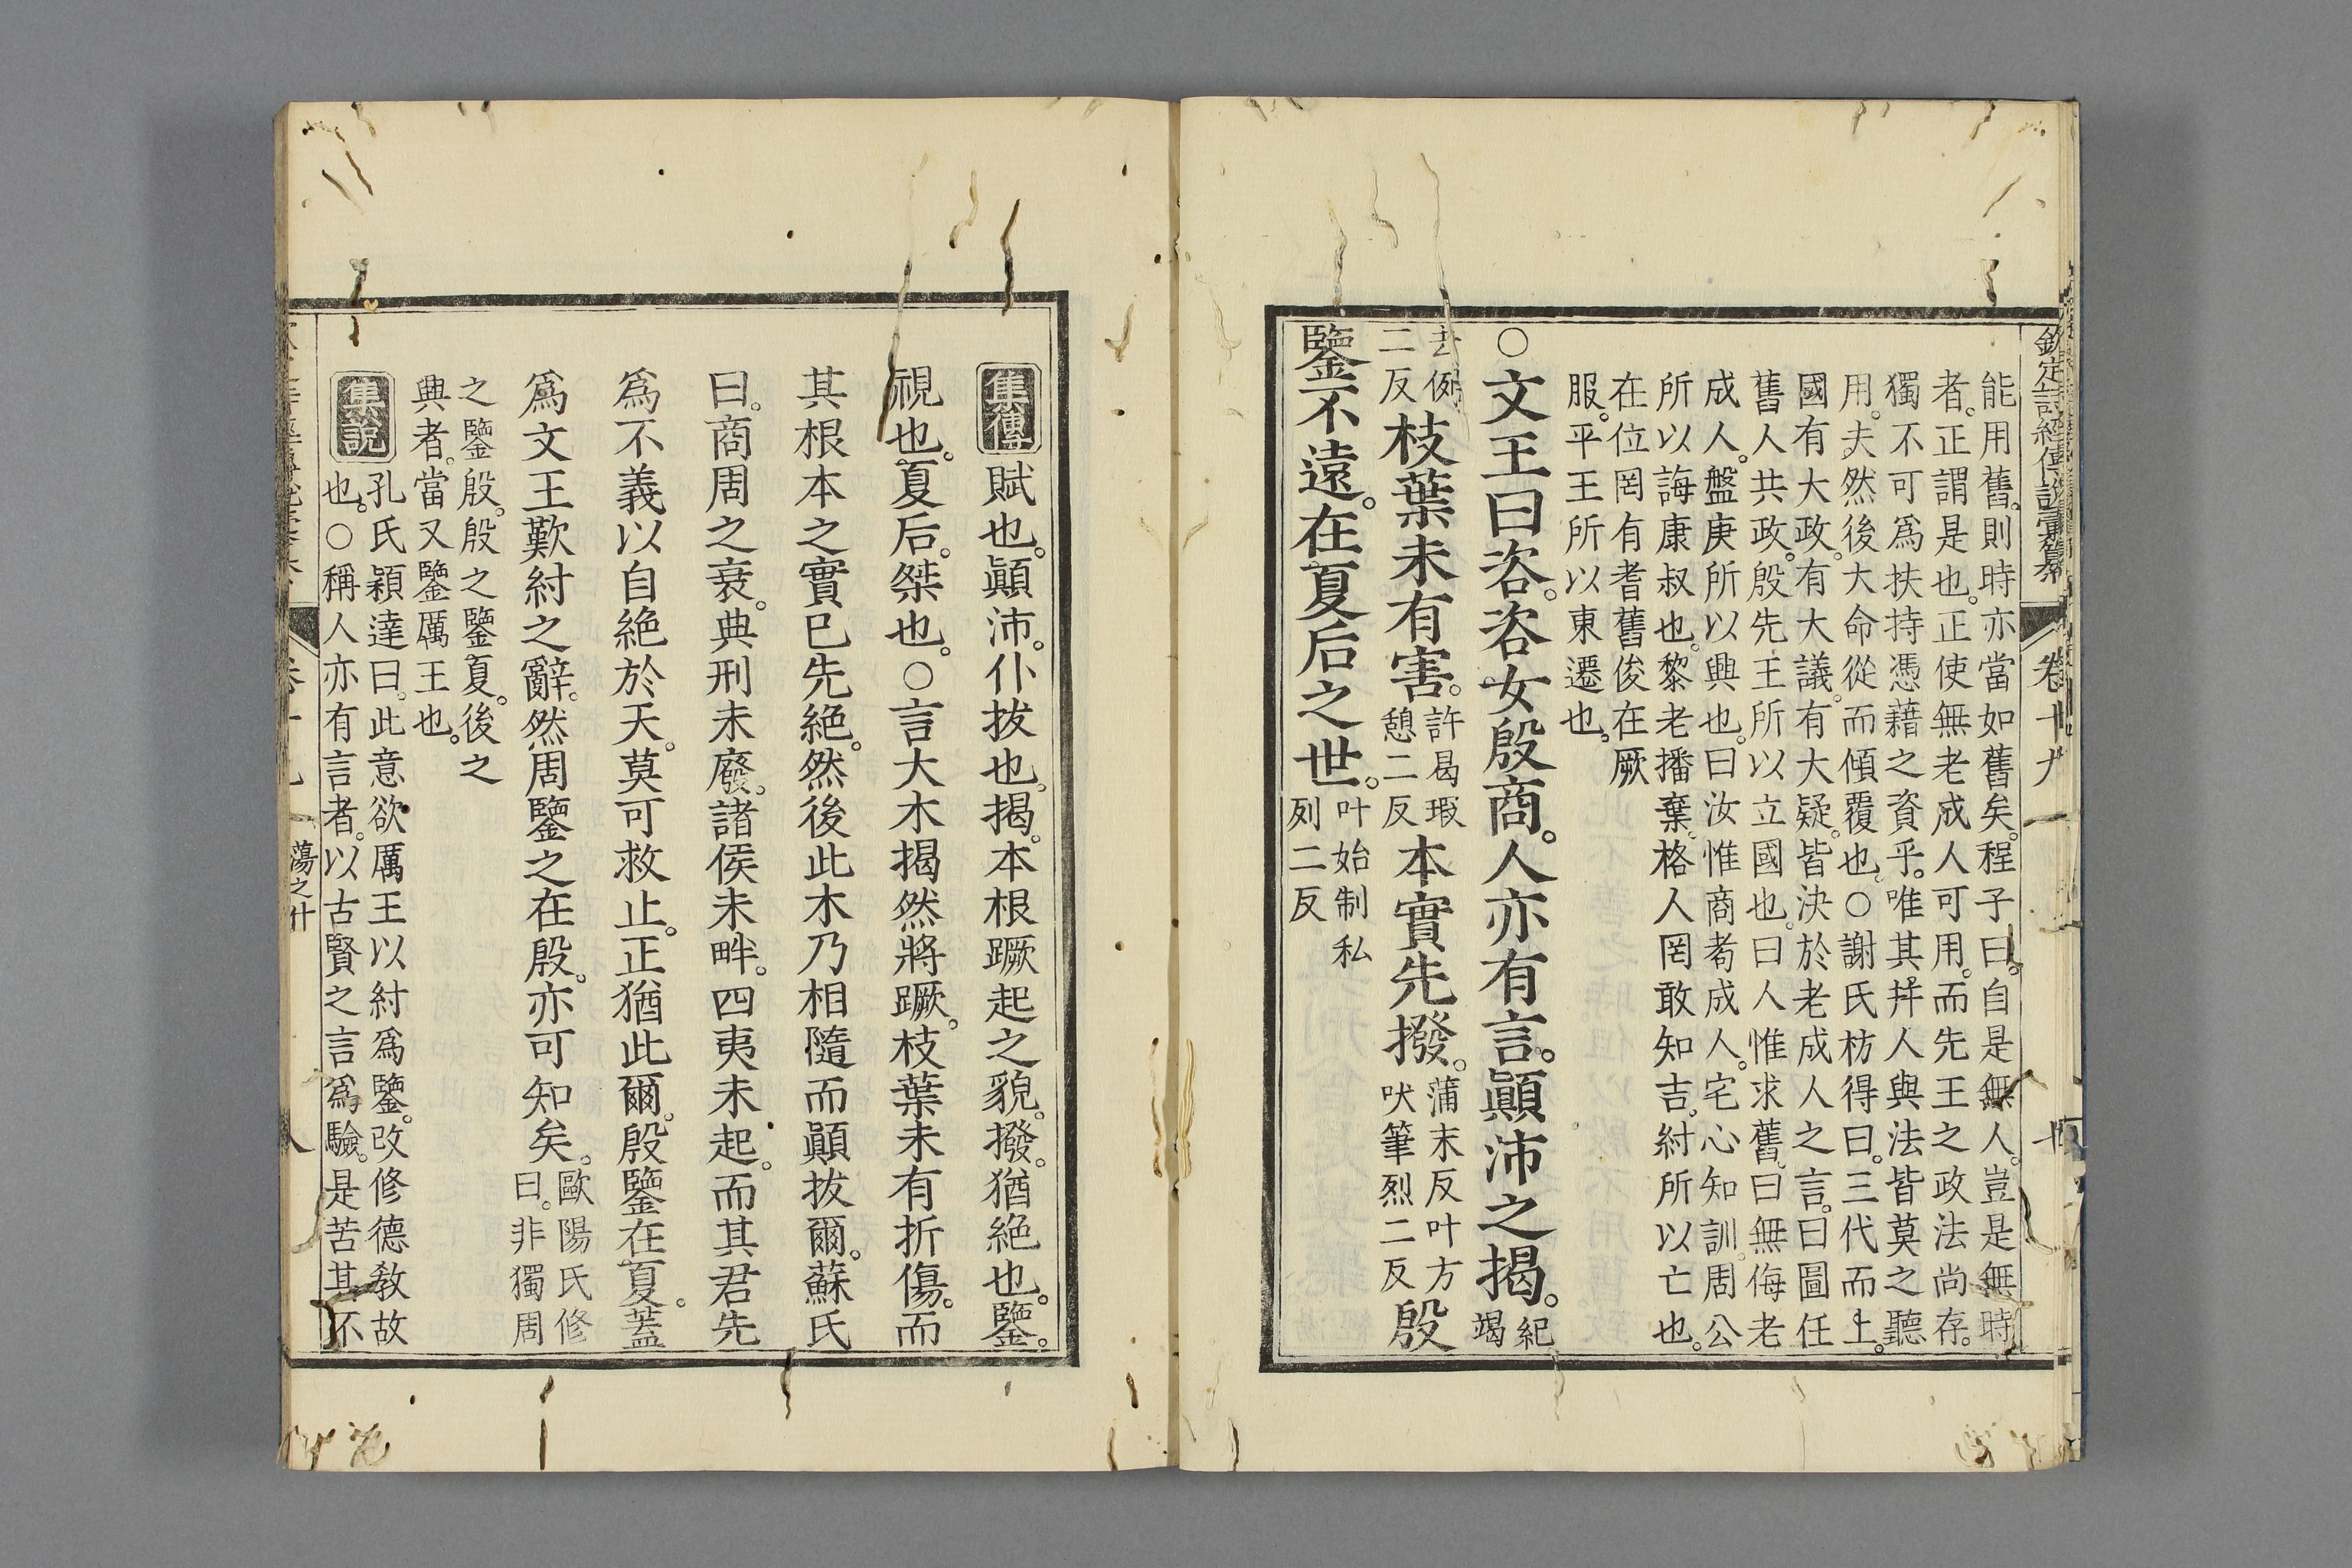 欽定詩經傳說彙纂
卷十九
能用舊。則時亦當如舊矣。程子曰。自是無人。豈是無時
者。正謂是也。正使無老成人可用。而先王之政法尚存。
獨不可爲扶持憑藉之資乎。唯其幷人與法皆莫之聽
用。夫然後大命從而傾覆也。○謝氏枋得曰。三代而上。
國有大政。有大議。有大疑。皆決於老成人之言。曰圖任
舊人共政。殷先王所以立國也。曰人惟求舊。曰無侮老
成人。盤庚所以興也。曰汝惟商耇成人。宅心知訓。周公
所以誨康叔也。黎老播棄。格人罔敢知吉。紂所以亡也。
在位罔有耆舊俊在厥
服。平王所以東遷也。
○文王曰咨。咨女殷商。人亦有言。顚沛之揭。紀竭
去例二反枝葉未有害。許曷瑕憩二反本實先撥。蒲末反叶方吠筆烈二反殷
鑒不遠。在夏后之世。叶始制私列二反
集傳賦也。顚沛。仆拔也。揭。本根蹶起之貌。撥。猶絕也。鑒。
視也。夏后。桀也。○言大木揭然將蹶。枝葉未有折傷。而
其根本之實已先絕。然後此木乃相隨而顚拔爾。蘇氏
曰。商周之衰。典刑未廢。諸侯未畔。四夷未起。而其君先
爲不義以自絕於天。莫可救止。正猶此爾。殷鑒在夏。蓋
爲文王歎紂之辭。然周鑒之在殷。亦可知矣。歐陽氏修曰。非獨周
之鑒殷。殷之鑒夏。後之
興者。當又鑒厲王也。
集說孔氏穎達曰。此意欲厲王以紂爲鑒。改修德敎故
也。○稱人亦有言者。以古賢之言爲驗。是苦其不
蕩之什